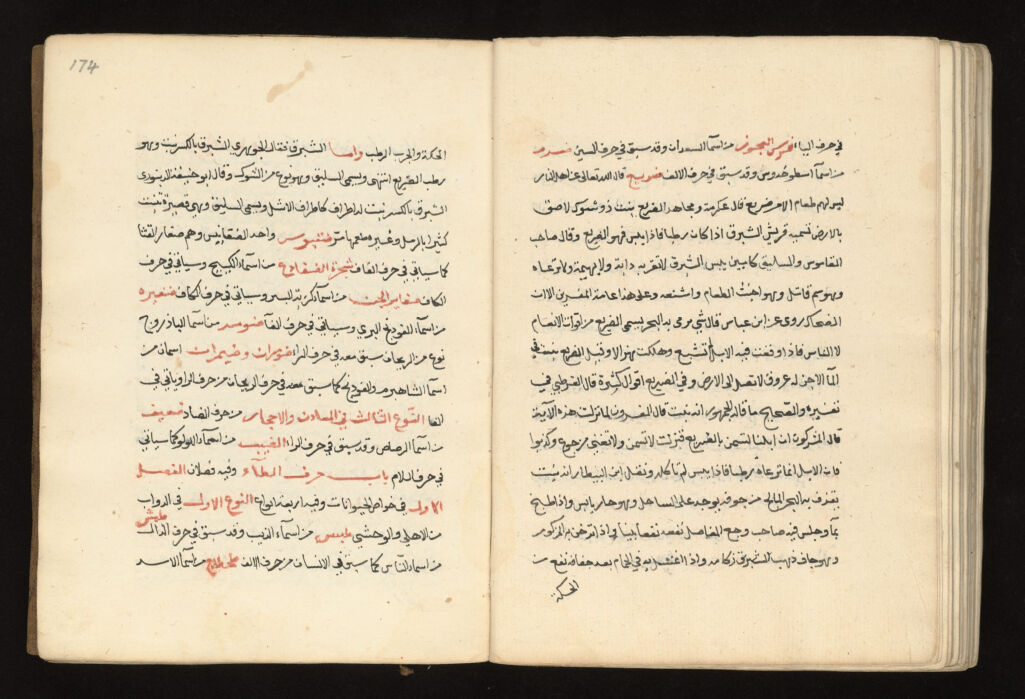 في حرف الياء ضرس العجوز من اسماء السعدان وقد سبق في حرف السين ضرم
من اسماء اسطوخدوس وقد سبق في حرف الالف ضريع قال الله تعالى خاطبا للنار
ليس لهم طعام الا من ضريع قال عكرمة ومجاهد الضريع نبت ذو شوك لاصق
بالارض تسميه قريش الشبرق اذا كان رطبا فاذا يبس فهو الضريع وقال صاحب
القاموس والسليق كامير يبس الشبرق لا تقربه دابة ولا بهيمة ولا ترعاه
وهو سم قاتل وهو اخبث الطعام واشنعه وعلى هذا عامة المفسرين الا ان
الضحاك روى عن ابن عباس قال شي يرمى به البحر يسمى الضريع من اقوات الانعام
لا الناس فاذا وقعت فيه الابل لم تشبع وهلكت هزالا وقيل الضريع نبت في
الماء الاجن له عروق لا تصل الى الارض وفي الضريع اقوال كثيرة قال القرطبي في
تفسيره والصحيح ما قاله الجمهور انه نبت قال المفسرون لما نزلت هذه الآية
قال المشركون ان ابلنا لتسمن بالضريع فنزلت لا يسمن ولا يغني من جوع وكذبوا
فان الابل انما ترعاه رطبا فاذا يبس لم تاكله ونقل ابن البيطار انه نبت
يقذف به البحر المالح من جوفه يوجد على الساحل وهو حار يابس واذا طبخ
بماء وجلس فيه صاحب وجع المفاصل نفعه نفعا بينا واذا تدخن به المزكوم
وهو جاف ذهب زكامه واذا اغتسل به في الحمام بعد جفافه نفع من
الحكة
174
الحكة والجرب الرطب واما الشبرق فقال الجوهري الشبرق بالكسر نبت وهو
رطب الضريع انتهى ويسمى السليق وهو نوع من الشوك وقال ابو حنيفة الدينوري
الشبرق بالكسر نبت له اطراف كاطراف الاثل ويسمى السليق وهي قصيرة تنبت
كثيرا بالرمل وغيره طعمها مر ضغبوس واحد الضغابيس وهم صغار القثا
كما سياتي في حرف القاف شجرة الضفادع من اسماء الكبيكج وسياتي في حرف
الكاف ضفاير الجن من اسماء كزبرة البير وسياتي في حرف الكاف ضفيره
من اسماء الفودنج البري وسياتي في حرف الفاء ضومر من اسماء الباذروج
نوع من الريحان سبق معه في حرف الراء ضومران وضيمران اسمان من
اسماء الشاهسرم والفودنج كما سبق معه في حرف الريحان من حرف الراء وياتي في
الفا النوع الثالث في المعادن والاحجار من حرف الضاد ضعيف
من اسماء الرصاص وقد سبق في حرف الراء الضبيب من اسماء اللولو كما سياتي
في حرف اللام باب حرف الطاء وفيه فصلان الفصل
الاول في خواص الحيوانات وفيه اربعة انواع النوع الاول في الدواب
من الاهلي والوحشي طبس من اسماء الذيب وقد سبق في حرف الذال طيش
من اسماء الناس كما سبق في الانسان من حرف الالف من اسماء الاسد